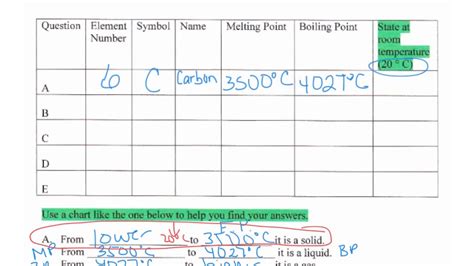 Question Element Number Symbol Name Melting Point Boiling Point State at room temperature (20 ° C)
A 6 C Carbon 3500°C 4027°C
B
C
D
E
Use a chart like the one below to help you find your answers.
A. From lower 20°C to 3500°C it is a solid.
MP From 3500°C to 4027°C it is a liquid. BP
From 4027°C to it is a gas.